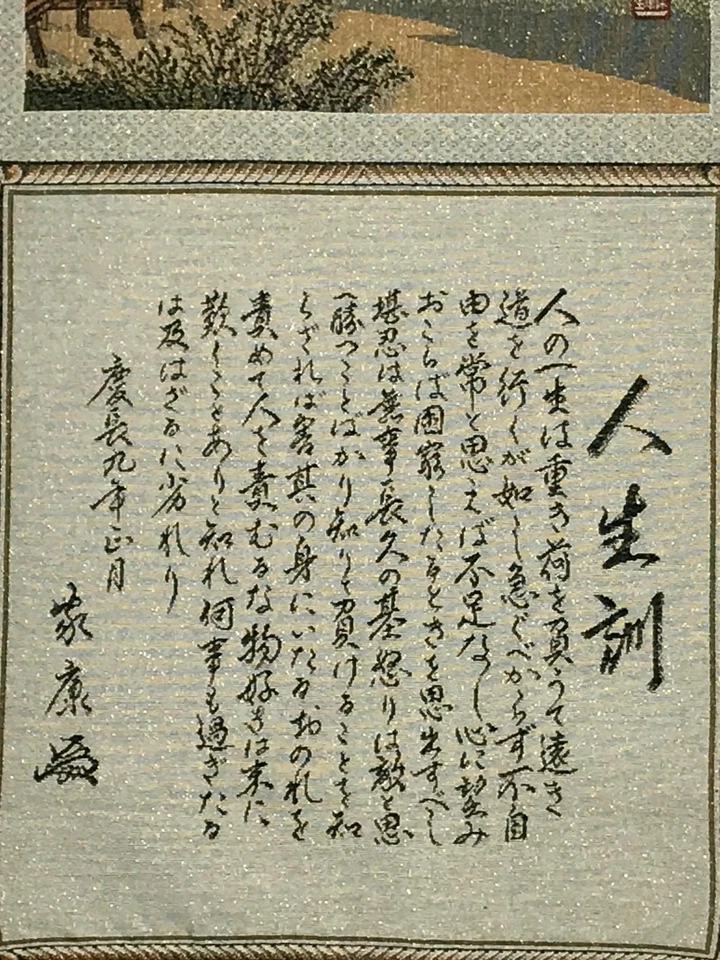 人生訓
人の一生は重き荷を負うて遠き
道を行くが如し急ぐべからず不自
由を常と思えば不足なし心に望み
おこらば困窮したるときを思出すべし
堪忍は無事長久の基怒りは敵と思
へ勝つことばかり知りて負けることを知
らざれば害其の身にいたるおのれを
責めて人を責むるな物好きは末に
歎くことありと知れ何事も過ぎたる
は及はざるに劣れり
慶長九年正月
家康